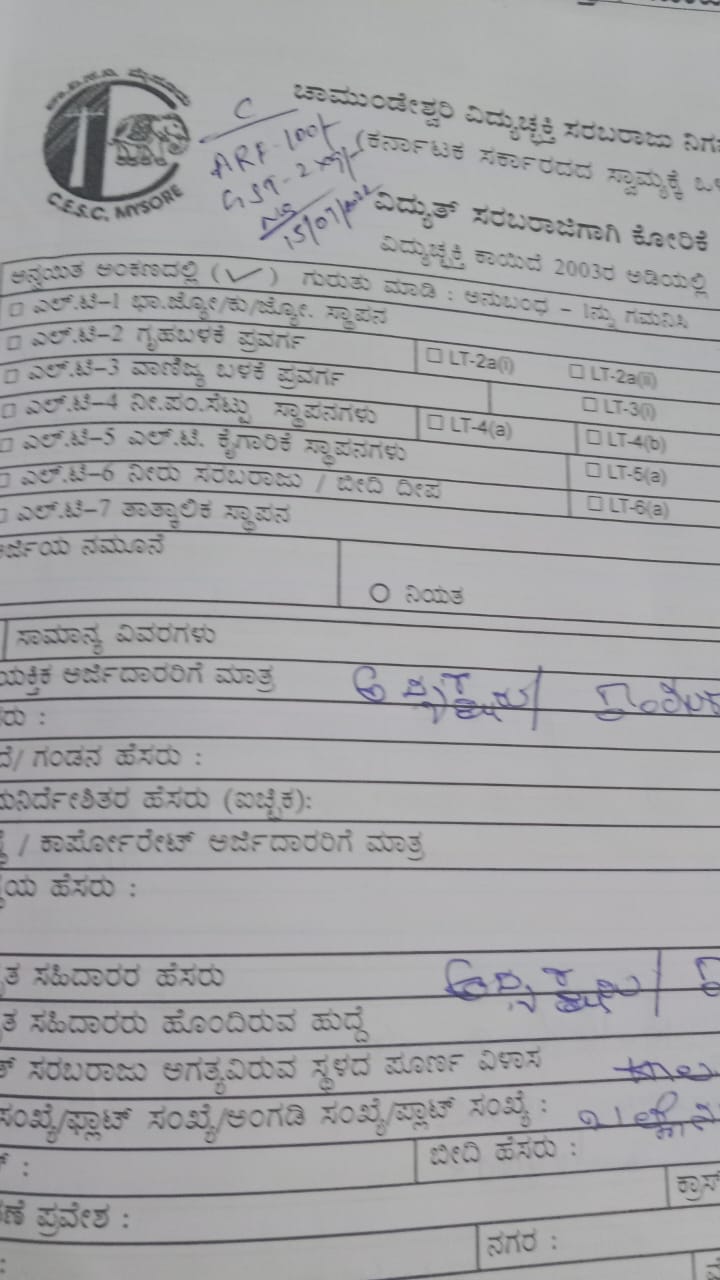 ಚಾಮುಂಡೇಶ್ವರಿ ವಿದ್ಯುಚ್ಛಕ್ತಿ ಸರಬರಾಜು ನಿಗ
(ಕರ್ನಾಟಕ ಸರ್ಕಾರದದ ಸ್ವಾಮ್ಯಕ್ಕೆ ಒಳ
C.E.S.C, MYSORE
C
ARF-100/-
15/07/2022
ವಿದ್ಯುತ್ ಸರಬರಾಜಿಗಾಗಿ ಕೋರಿಕೆ
ವಿದ್ಯುಚ್ಛಕ್ತಿ ಕಾಯಿದೆ 2003ರ ಅಡಿಯಲ್ಲಿ
ಅನ್ವಯಿತ ಅಂಕಣದಲ್ಲಿ (✓) ಗುರುತು ಮಾಡಿ : ಅನುಬಂಧ – 1ನ್ನು ಗಮನಿಸಿ
□ ಎಲ್.ಟಿ–1 ಭಾ.ಜ್ಯೋ/ಕು/ಜ್ಯೋ. ಸ್ಥಾಪನ
□ ಎಲ್.ಟಿ–2 ಗೃಹಬಳಕೆ ಪ್ರವರ್ಗ □ LT-2a(i) □ LT-2a(ii)
□ ಎಲ್.ಟಿ–3 ವಾಣಿಜ್ಯ ಬಳಕೆ ಪ್ರವರ್ಗ □ LT-3(i)
□ ಎಲ್.ಟಿ–4 ನೀ.ಪಂ.ಸೆಟ್ಟು ಸ್ಥಾಪನಗಳು □ LT-4(a) □ LT-4(b)
□ ಎಲ್.ಟಿ–5 ಎಲ್.ಟಿ. ಕೈಗಾರಿಕೆ ಸ್ಥಾಪನಗಳು □ LT-5(a)
□ ಎಲ್.ಟಿ–6 ನೀರು ಸರಬರಾಜು / ಬೀದಿ ದೀಪ □ LT-6(a)
□ ಎಲ್.ಟಿ–7 ತಾತ್ಕಾಲಿಕ ಸ್ಥಾಪನ
ಅರ್ಜಿಯ ನಮೂನೆ
○ ನಿಯತ
ಸಾಮಾನ್ಯ ವಿವರಗಳು
ಯಕ್ತಿಕ ಅರ್ಜಿದಾರರಿಗೆ ಮಾತ್ರ
ರು :
ದೆ/ ಗಂಡನ ಹೆಸರು :
ಮನಿರ್ದೇಶಿತರ ಹೆಸರು (ಐಚ್ಛಿಕ):
/ ಕಾರ್ಪೋರೇಟ್ ಅರ್ಜಿದಾರರಿಗೆ ಮಾತ್ರ
ಯ ಹೆಸರು :
ತ ಸಹಿದಾರರ ಹೆಸರು
ತ ಸಹಿದಾರರು ಹೊಂದಿರುವ ಹುದ್ದೆ
ತ್ ಸರಬರಾಜು ಅಗತ್ಯವಿರುವ ಸ್ಥಳದ ಪೂರ್ಣ ವಿಳಾಸ
ಸಂಖ್ಯೆ/ಫ್ಲಾಟ್ ಸಂಖ್ಯೆ/ಅಂಗಡಿ ಸಂಖ್ಯೆ/ಪ್ಲಾಟ್ ಸಂಖ್ಯೆ :
್ : ಬೀದಿ ಹೆಸರು :
ಣೆ ಪ್ರವೇಶ : ಕ್ರಾಸ್
ನಗರ :